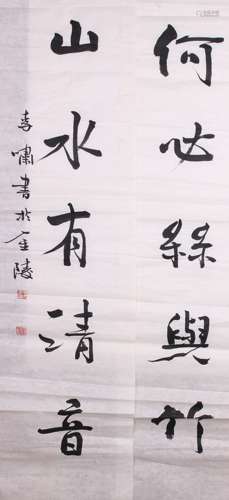 何必絲與竹
山水有清音
李啸書於金陵